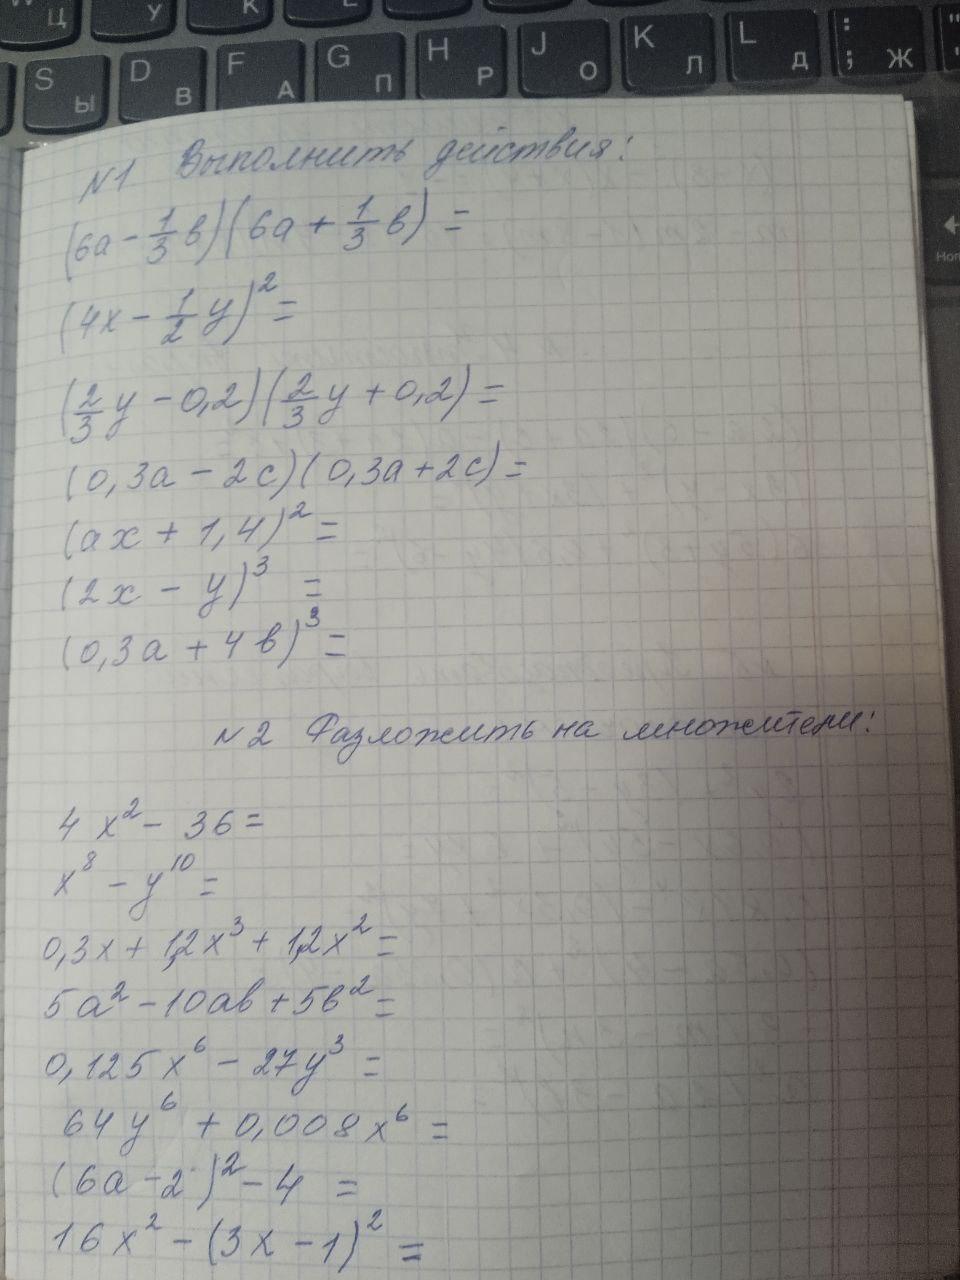 Ц У К
S Ы D В F А G П H Р J О K Л L Д : ; Ж
N1 Выполнить действия:
(6a - 1/3 в)(6a + 1/3 в) =
(4x - 1/2 y)² =
(2/3 y - 0,2)(2/3 y + 0,2) =
(0,3a - 2c)(0,3a + 2c) =
(ax + 1,4)² =
(2x - y)³ =
(0,3a + 4в)³ =
N2 Разложить на множители:
4x² - 36 =
x⁸ - y¹⁰ =
0,3x + 1,2x³ + 1,2x² =
5a² - 10aв + 5в² =
0,125x⁶ - 27y³ =
64y⁶ + 0,008x⁶ =
(6a - 2)² - 4 =
16x² - (3x - 1)² =